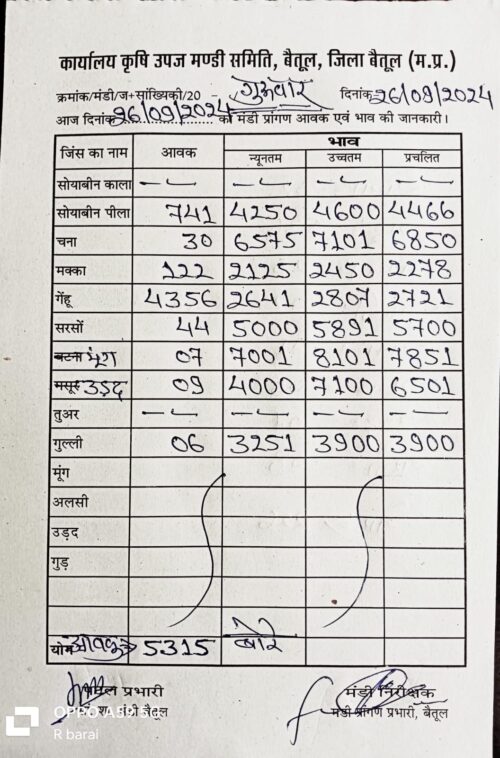 कार्यालय कृषि उपज मण्डी समिति, बैतूल, जिला बैतूल (म.प्र.)
क्रमांक/मंडी/ज+सांख्यिकी/20 - गुरूवार दिनांक 26/09/2024
आज दिनांक 26/09/2024 को मंडी प्रांगण आवक एवं भाव की जानकारी।
जिंस का नाम आवक भाव
न्यूनतम उच्चतम प्रचलित
सोयाबीन काला -- -- -- --
सोयाबीन पीला 741 4250 4600 4466
चना 30 6575 7101 6850
मक्का 122 2125 2450 2278
गेंहू 4356 2641 2807 2721
सरसों 44 5000 5891 5700
बटना मूंग 07 7001 8101 7851
मसूर उड़द 09 4000 7100 6501
तुअर -- -- -- --
गुल्ली 06 3251 3900 3900
मूंग
अलसी
उड़द
गुड़
योग आवक 5315 बोरे
प्रभारी मंडी निरीक्षक
मंडी बैतूल मंडी प्रांगण प्रभारी, बैतूल
OPPO A59 5G
R barai